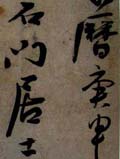 暦庚申
石門居士